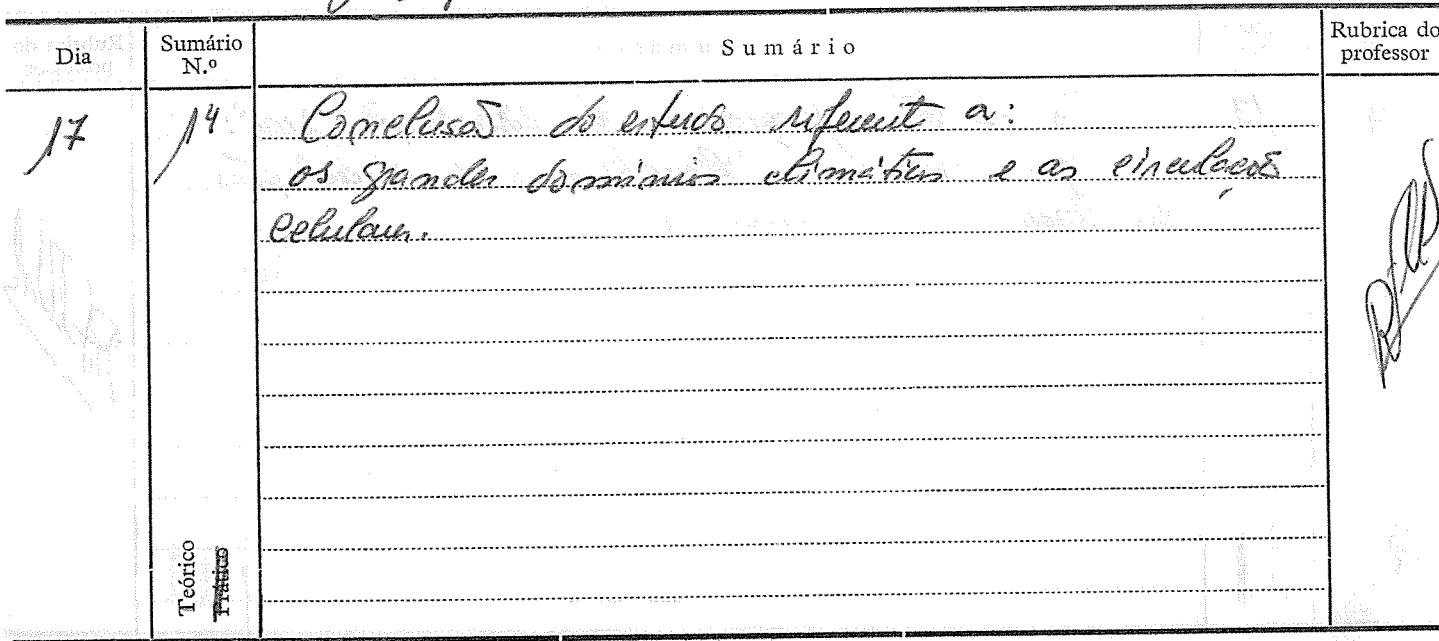 Dia
Sumário N.º
Sumário
Rubrica do professor
17
14
Conclusão do estudo referent a:
os grandes domínios climáticos e as circulações
celulares.
Teórico
Prático